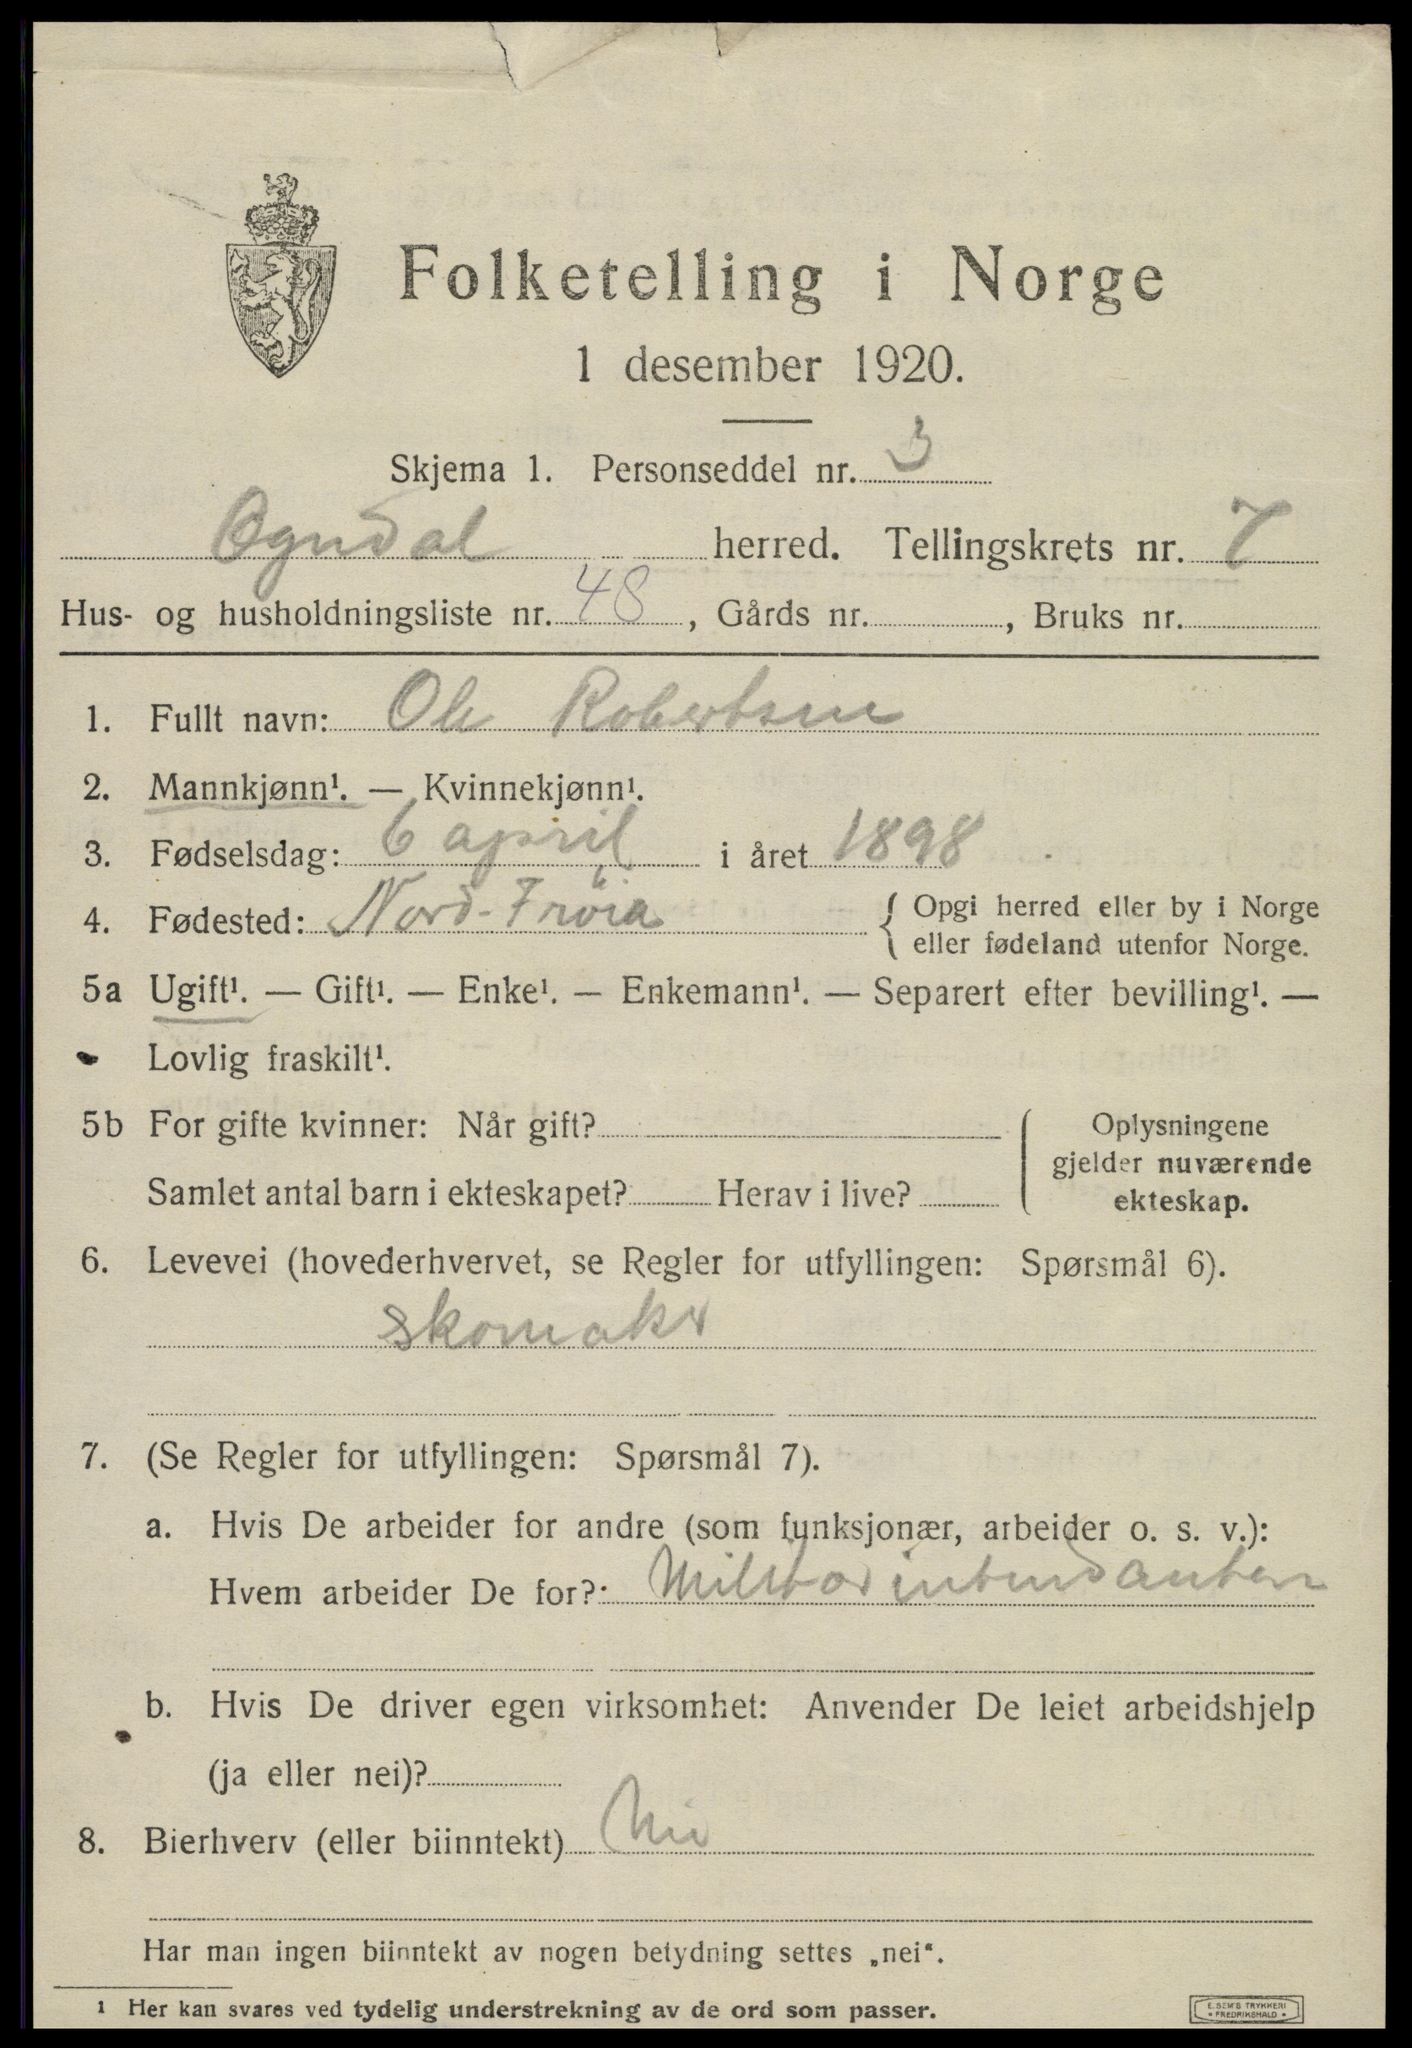 Folketelling i Norge
1 desember 1920.
Skjema 1. Personseddel nr. 3
Ogndal herred. Tellingskrets nr. 7
Hus- og husholdningsliste nr. 48, Gårds nr. , Bruks nr.
1. Fullt navn: Ole Robertsen
2. Mannkjønn¹. — Kvinnekjønn¹.
3. Fødselsdag: 6 april i året 1898
4. Fødested: Nord-Frøia { Opgi herred eller by i Norge
eller fødeland utenfor Norge.
5a Ugift¹. — Gift¹. — Enke¹. — Enkemann¹. — Separert efter bevilling¹. —
Lovlig fraskilt¹.
5b For gifte kvinner: Når gift?
Samlet antal barn i ekteskapet? Herav i live?
Oplysningene
gjelder nuværende
ekteskap.
6. Levevei (hovederhvervet, se Regler for utfyllingen: Spørsmål 6).
skomaker
7. (Se Regler for utfyllingen: Spørsmål 7).
a. Hvis De arbeider for andre (som funksjonær, arbeider o. s. v.):
Hvem arbeider De for?: Militærintendanten
b. Hvis De driver egen virksomhet: Anvender De leiet arbeidshjelp
(ja eller nei)?
8. Bierhverv (eller biinntekt) Nei
Har man ingen biinntekt av nogen betydning settes „nei“.
1 Her kan svares ved tydelig understrekning av de ord som passer.
E. SEM'S TRYKKERI
• FREDRIKSHALD •